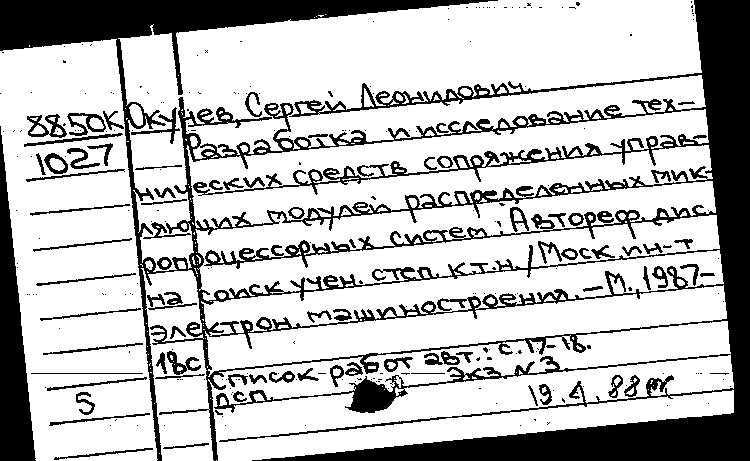 8850К Окунев, Сергей Леонидович.
1027 Разработка и исследование тех-
нических средств сопряжения управ-
ляющих модулей распределенных мик-
ропроцессорных систем: Автореф. дис.
на соиск учен. степ. к.т.н. / Моск. ин-т
электрон. машиностроения. – М., 1987 –
18с.
Список работ авт.: с. 17-18.
ДСП. Экз. N 3.
5 19.4.88